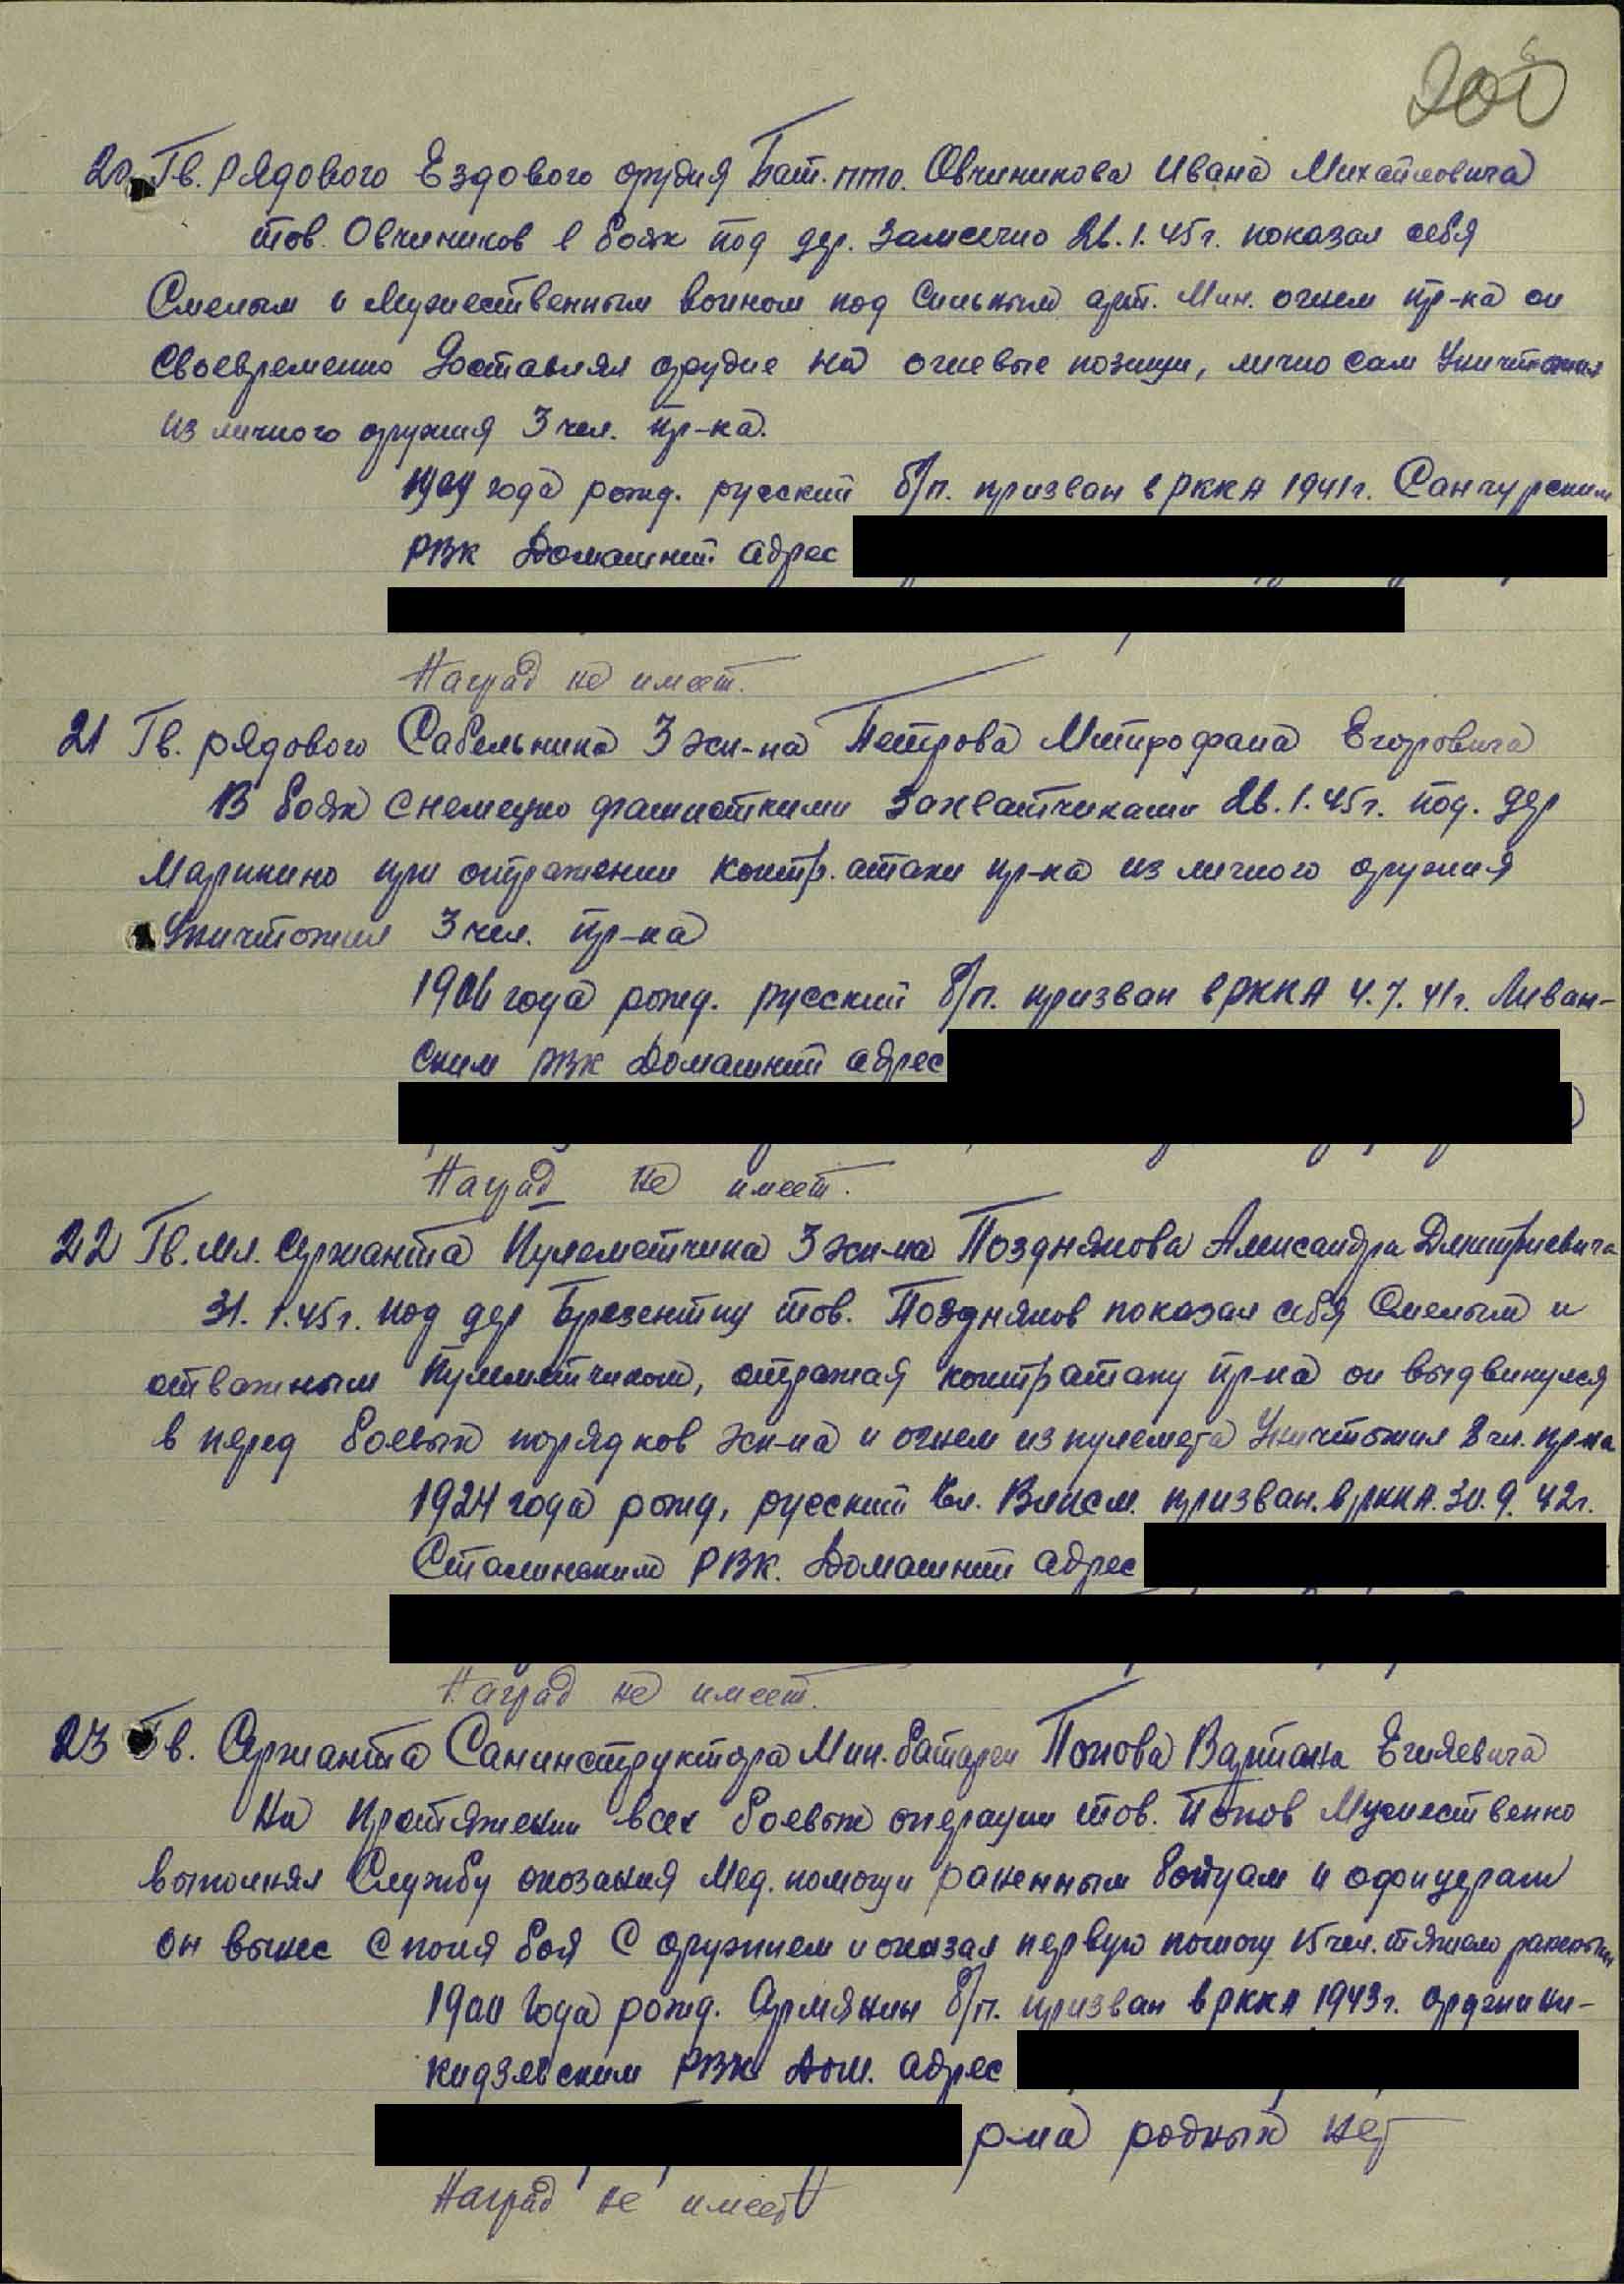 200
20 Гв. рядового Ездового орудия Бат. пто. Овчинникова Ивана Михайловича
тов. Овчинников в боях под дер. 26.1.45г. показал себя
Смелым и Мужественным воином под Сильным арт. Мин. огнем пр-ка он
Своевременно Доставлял орудие на огневые позиции, лично сам Уничтожил
из личного оружия 3 чел. пр-ка.
1904 года рожд. русский б/п. призван в РККА 1941г. Санчурским
РВК Домашний адрес
Наград не имеет.
21 Гв. рядового Сабельника 3 эск-на Петрова Митрофана Егоровича
В боях с немецко фашисткими Захватчиками 26.1.45г. под. дер
Маринино при отражении контр. атаки пр-ка из личного оружия
Уничтожил 3 чел. пр-ка
1906 года рожд. русский б/п. призван в РККА 4.7.41г. Ливан-
ским РВК Домашний адрес
Наград не имеет.
22 Гв. мл. Сержанта Пулеметчика 3 эск-на Позднякова Александра Дмитриевича
31.1.45г. под дер тов. Поздняков показал себя Смелым и
отважным Пулеметчиком, отражая контратаку пр-ка он выдвинулся
в перед боевых порядков эск-на и огнем из пулемета Уничтожил 8 чл. пр-ка
1924 года рожд, русский Чл. Влксм. призван. в РККА. 30.9.42г.
Сталинским РВК. Домашний адрес
Наград не имеет.
23 Гв. Сержанта Санинструктора Мин. батареи Попова Вартана Егияевича
На протяжении всех боевых операции тов. Попов Мужественно
выполнял Службу оказания Мед. помощи раненным бойцам и офицерам
он вынес с поля боя С оружием и оказал первую помощь 15 чел. тяжело раненым
1900 года рожд. Армянин б/п. призван в РККА 1943г. Орджони-
кидзевским РВК Дом. адрес
р-на родных нет
Наград не имеет